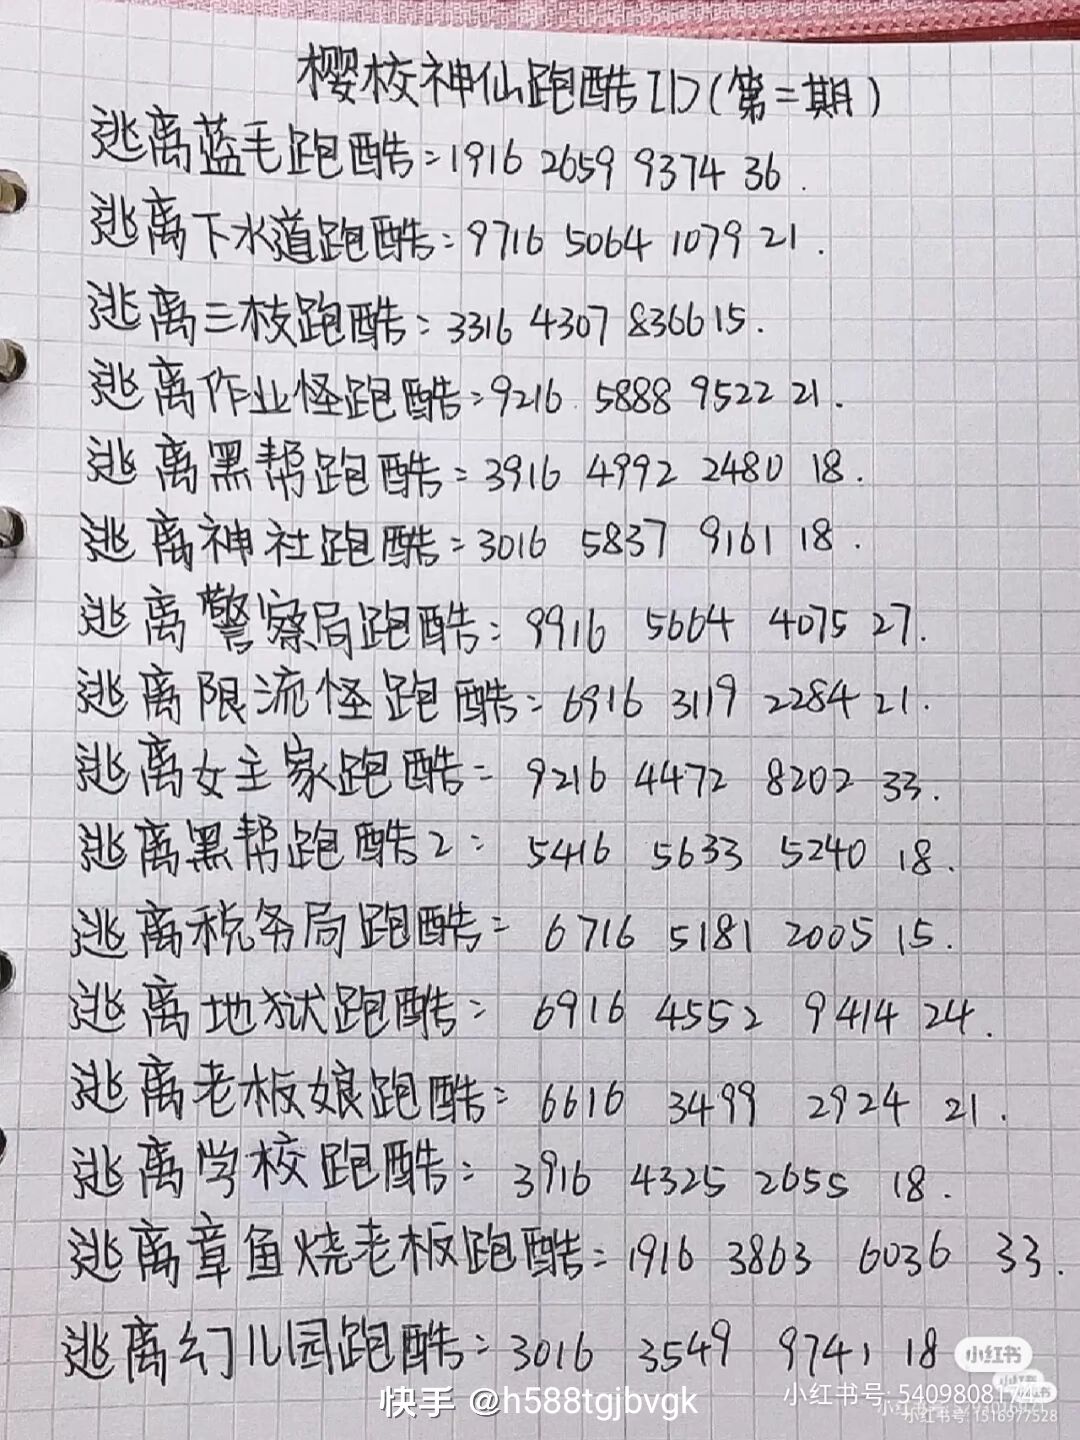 樱校神仙跑酷ID(第二期)
逃离蓝毛跑酷:1916 2659 9374 36.
逃离下水道跑酷:9716 5064 1079 21.
逃离三枝跑酷:3316 4307 8366 15.
逃离作业怪跑酷:9216 5888 9522 21.
逃离黑帮跑酷:3916 4992 2480 18.
逃离神社跑酷:3016 5837 9161 18.
逃离警察局跑酷:9916 5664 4075 27.
逃离限流怪跑酷:6916 3119 2284 21.
逃离女主家跑酷:9216 4472 8202 33.
逃离黑帮跑酷2:5416 5633 5240 18.
逃离税务局跑酷:6716 5181 2005 15.
逃离地狱跑酷:6916 4552 9414 24.
逃离老板娘跑酷:6616 3499 2924 21.
逃离学校跑酷:3916 4325 2655 18.
逃离章鱼烧老板跑酷:1916 3863 6036 33.
逃离幻儿园跑酷:3016 3549 9741 18
小红书
快手 @h588tgjbvgk
小红书号: 5409808174
小红书号: 1516977528